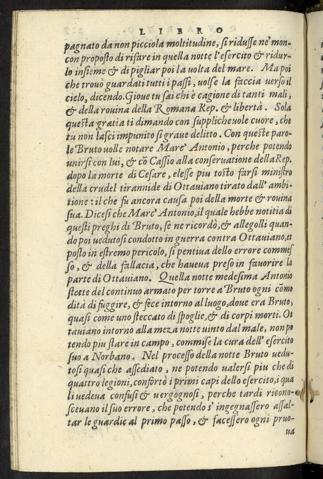 LIBRO
pagnato da non picciola moltitudine, si ridusse ne' mon-
con proposito di rifare in quella notte l'esercito & ridur-
lo insieme & di pigliar poi la volta del mare. Ma poi
che trouò guardati tutti i passi, uolse la faccia uerso il
cielo, dicendo. Gioue tu sai chi è cagione di tanti mali,
& della rouina della Romana Rep. & libertà. Sola
questa gratia ti dimando con supplicheuole cuore, che
tu non lasci impunito si graue delitto. Con queste paro-
le Bruto uolle notare Marc' Antonio, perche potendo
unirsi con lui, & cõ Cassio alla conseruatione della Rep.
dopo la morte di Cesare, elesse piu tosto farsi ministro
della crudel tirannide di Ottauiano tirato dall' ambi-
tione: il che fu ancora causa poi della morte & rouina
sua. Dicesi che Marc' Antonio, il quale hebbe notitia di
questi preghi di Bruto, se ne ricordò, & allegolli quan-
do poi uedutosi condotto in guerra contra Ottauiano, et
posto in estremo pericolo, si pentiua dello errore commes-
so, & della fallacia, che haueua preso in fauorire la
parte di Ottauiano. Quella notte medesima Antonio
stette del continuo armato per torre a Bruto ogni cõmo
dità di fuggire, & fece intorno al luogo, doue era Bruto,
quasi come uno steccato di spoglie, & di corpi morti. Ot
tauiano intorno alla meza notte uinto dal male, non po
tendo piu stare in campo, commise la cura dell' esercito
suo a Norbano. Nel processo della notte Bruto uedu-
tosi quasi che assediato, ne potendo ualersi piu che di
quattro legioni, confortò i primi capi dello esercito, i qua
li uedeua confusi & uergognosi, perche tardi ricono-
sceuano il suo errore, che potendo s' ingegnassero assal-
tar le guardie al primo passo, & facessero ogni pruo-
ua